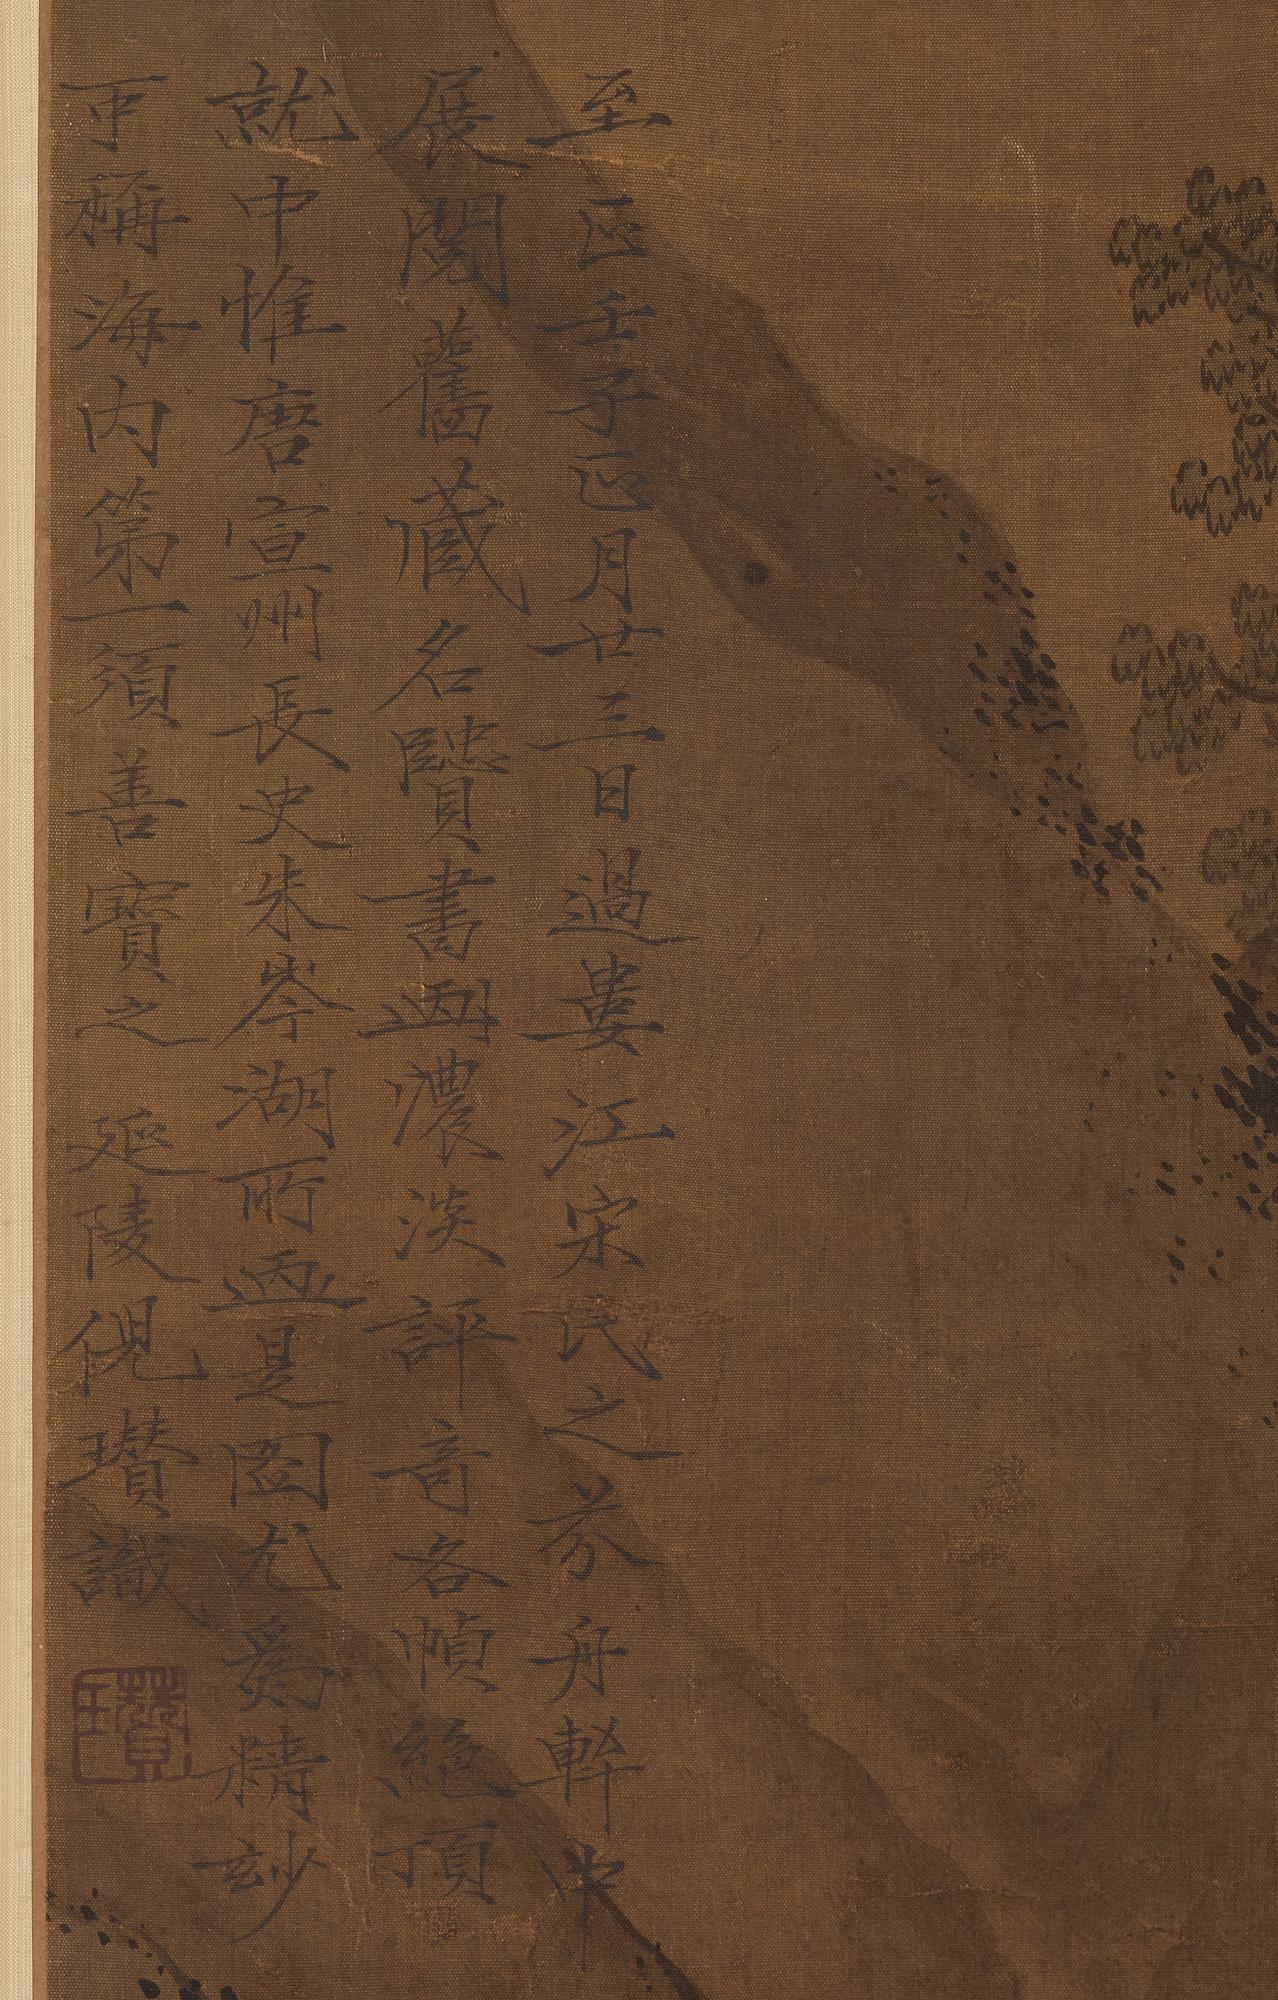 至正壬子正月廿三日過婁江宋氏之芥舟軒中
展閱舊藏名賢書画濃淡評音各幀絕頂
就中惟唐宣州長史朱岑湖所畫是圖尤為精妙
可稱海内第一須善寶之 延陵倪瓚識